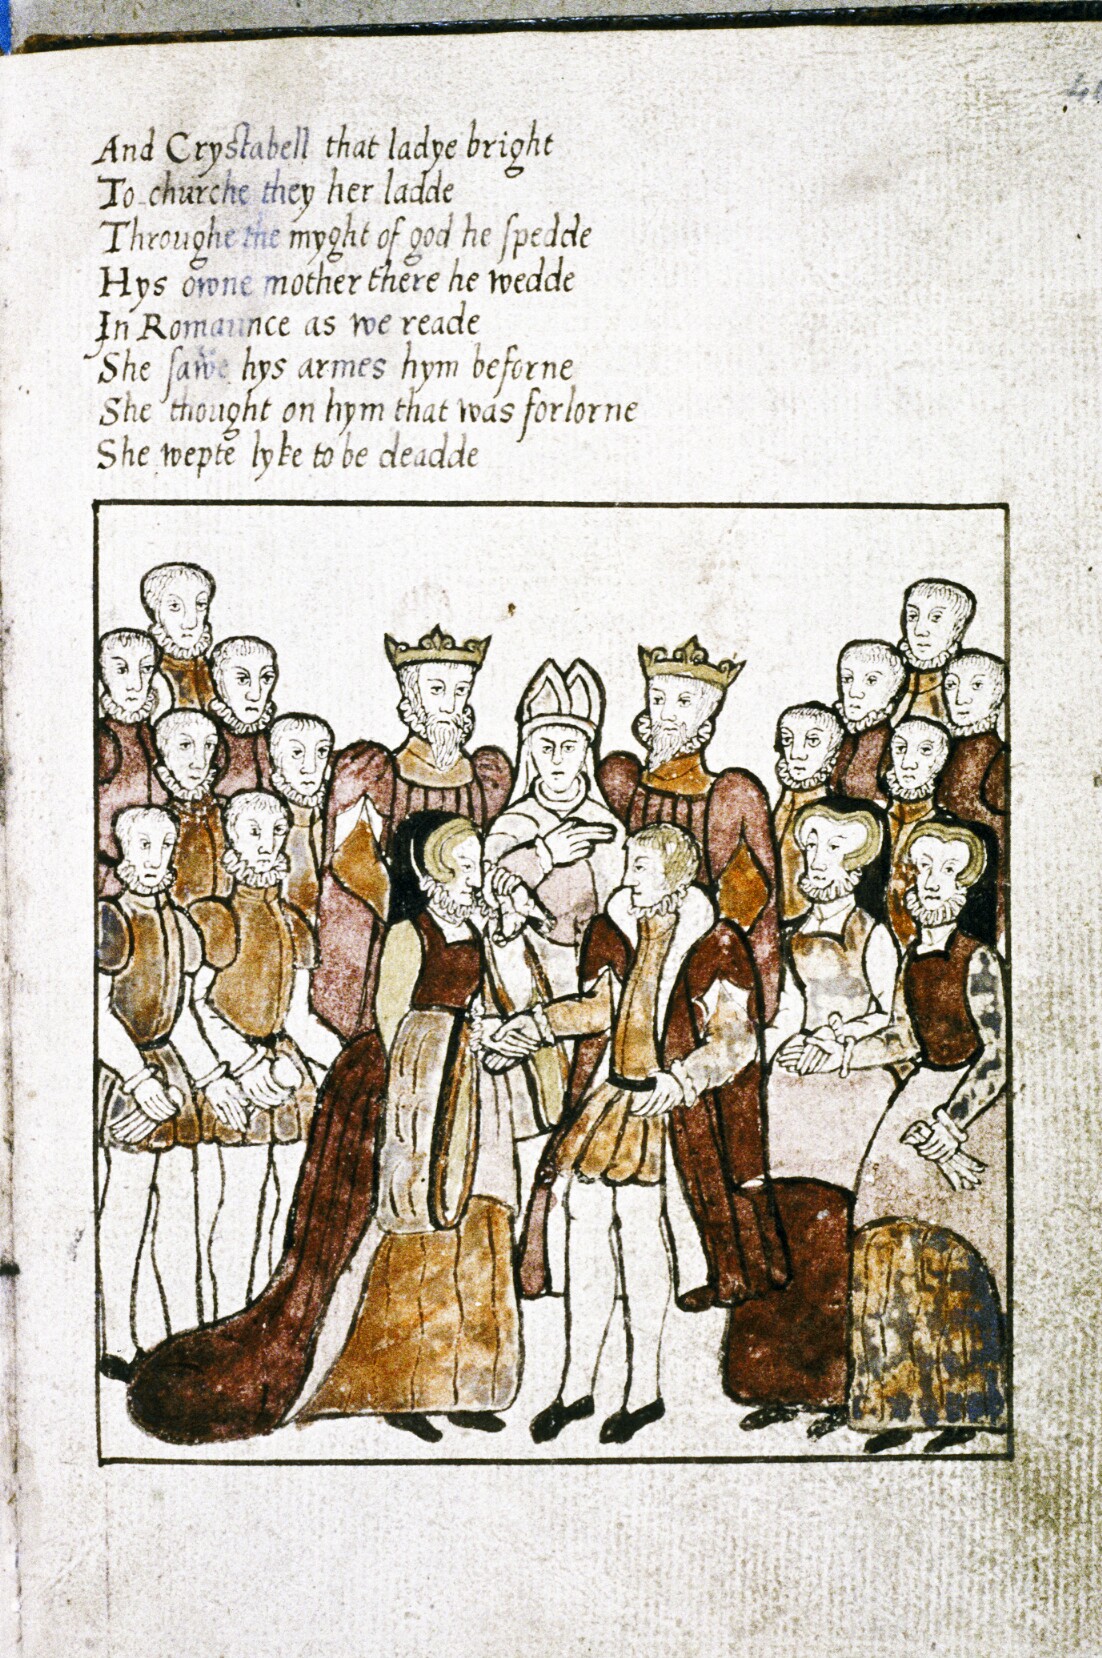 And Crystabell that ladye bright
To churche they her ladde
Throughe the myght of god he spedde
Hys owne mother there he wedde
In Romaunce as we reade
She sawe hys armes hym beforne
She thought on hym that was forlorne
She wepte lyke to be deadde